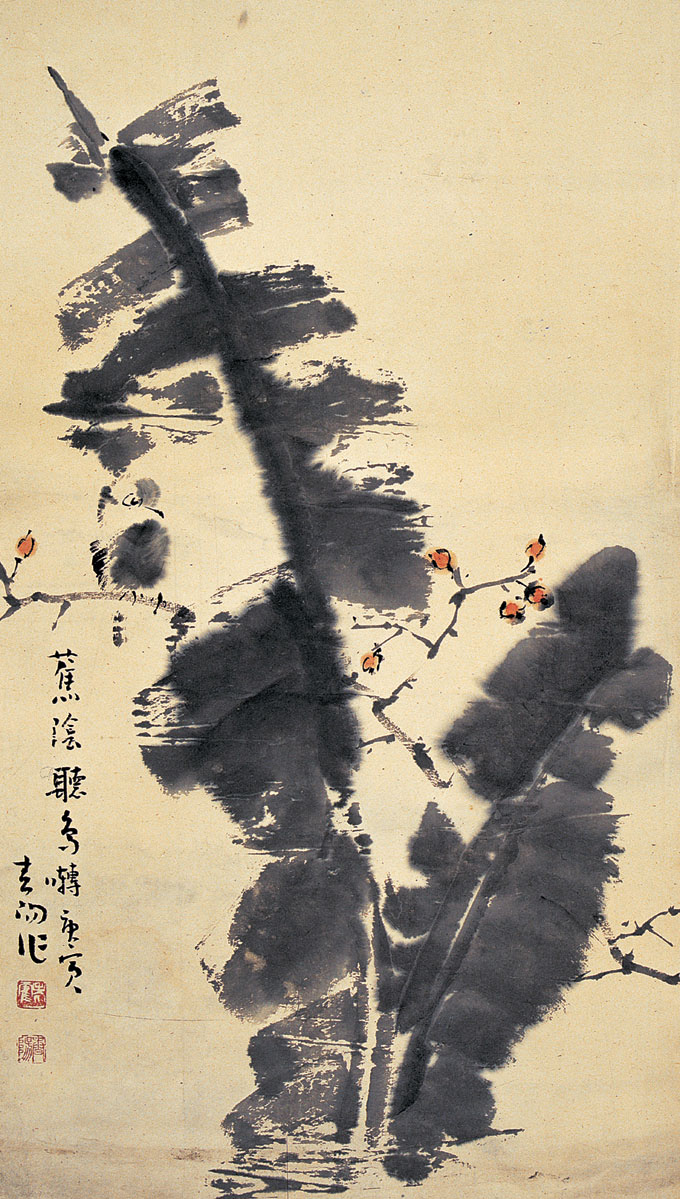 蕉陰聽鳥囀庚寅
作